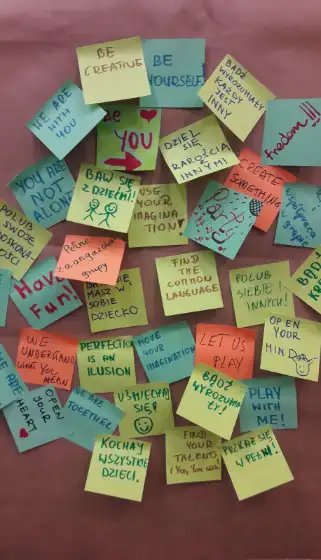 BE
CREATIVE
BE
YOURSELF!
BĄDŹ
WYROZUMIAŁY
KAŻDY
JEST
INNY
WE ARE
WITH
YOU
Be
YOU
DZIEL
SIĘ
RAROŚCIĄ
INNYMI
Freedom!!!
YOU ARE
NOT
ALONE
BAW SIĘ
Z DZIEĆMI!
USE
YOUR
IMAGINA
TION!
CREATE
SOMETHING
Party
POLUB
SWOJE
Pełne
zaangażowanie
grupy
MASZ W
SOBIE
DZIECKO
FIND
THE
COMMON
LANGUAGE
POLUB
SIEBIE I
INNYCH!
BĄDŹ
Have
Fun!
WE
UNDERSTAND
WHAT YOU
MEAN
PERFECTION
IS AN
ILLUSION
MOVE
YOUR
IMAGINATION
LET US
PLAY
OPEN
YOUR
MIND
WE ARE
OPEN
YOUR
HEART
WE ARE
TOGETHER
UŚMIECHAJ
SIĘ!
BĄDŹ
WYROZUMIA
ŁY!
PLAY
WITH
ME!
KOCHAJ
WSZYSTKIE
DZIECI.
FIND
YOUR
TALENT
(Yes, You can!)
POKAŻ SIĘ
W PEŁNI!